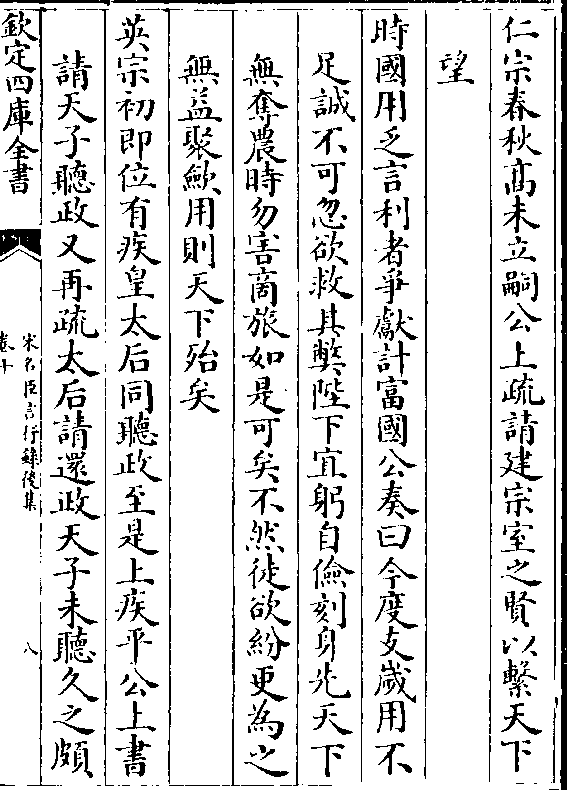 仁宗春秋髙未立嗣公上疏請建宗室之賢以繫天下
望
時國用乏言利者爭獻計富國公奏曰今度支歲用不
足誠不可忽欲救其獘陛下宜躬自儉刻身先天下
無奪農時勿害商旅如是可矣不然徒欲紛更為之
無益聚歛用則天下殆矣
英宗初即位有疾皇太后同聽政至是上疾平公上書
請天子聽政又再疏太后請還政天子未聽久之頗
欽定四庫全書
宋名臣言行錄後集
卷十
八